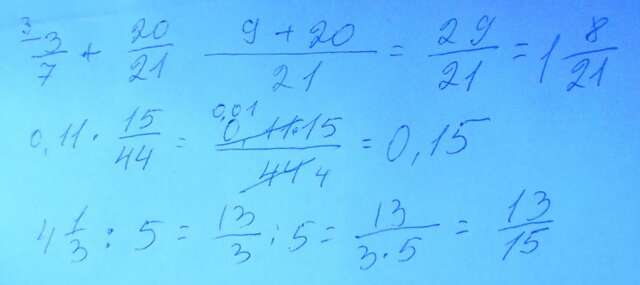 3 3/7 + 20/21 (9 + 20)/21 = 29/21 = 1 8/21
0,11 · 15/44 = 0,01 (0,11·15)/(44 4) = 0,15
4 1/3 : 5 = 13/3 : 5 = 13/(3·5) = 13/15